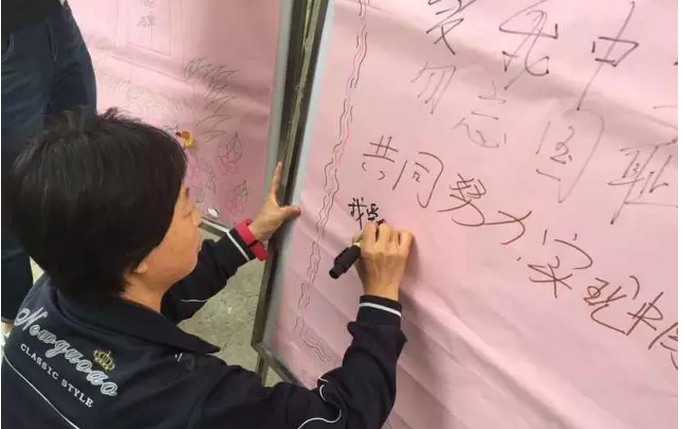 碑
我中
勿忘国耻
共同努力,实现中
我是
Newguoao
CLASSIC STYLE